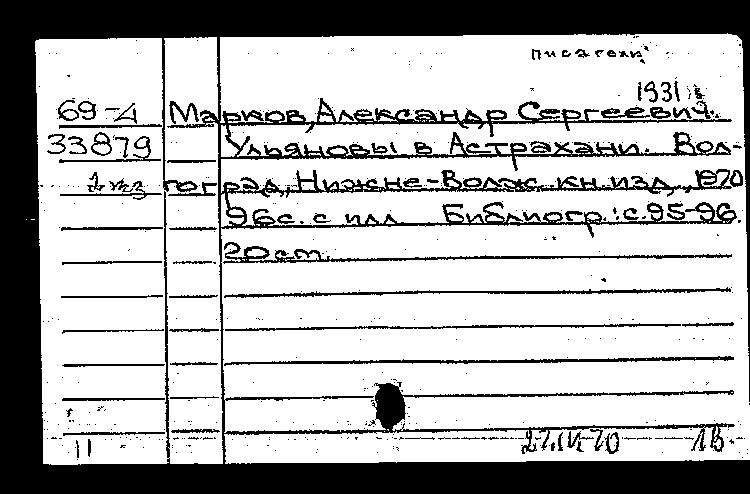 писатель
1931
69-4 Марков, Александр Сергеевич.
33879 Ульяновы в Астрахани. Вол-
гоград, Нижне-Волж. кн. изд., 1970
96с. с илл Библиогр.: с.95-96.
20см.
11